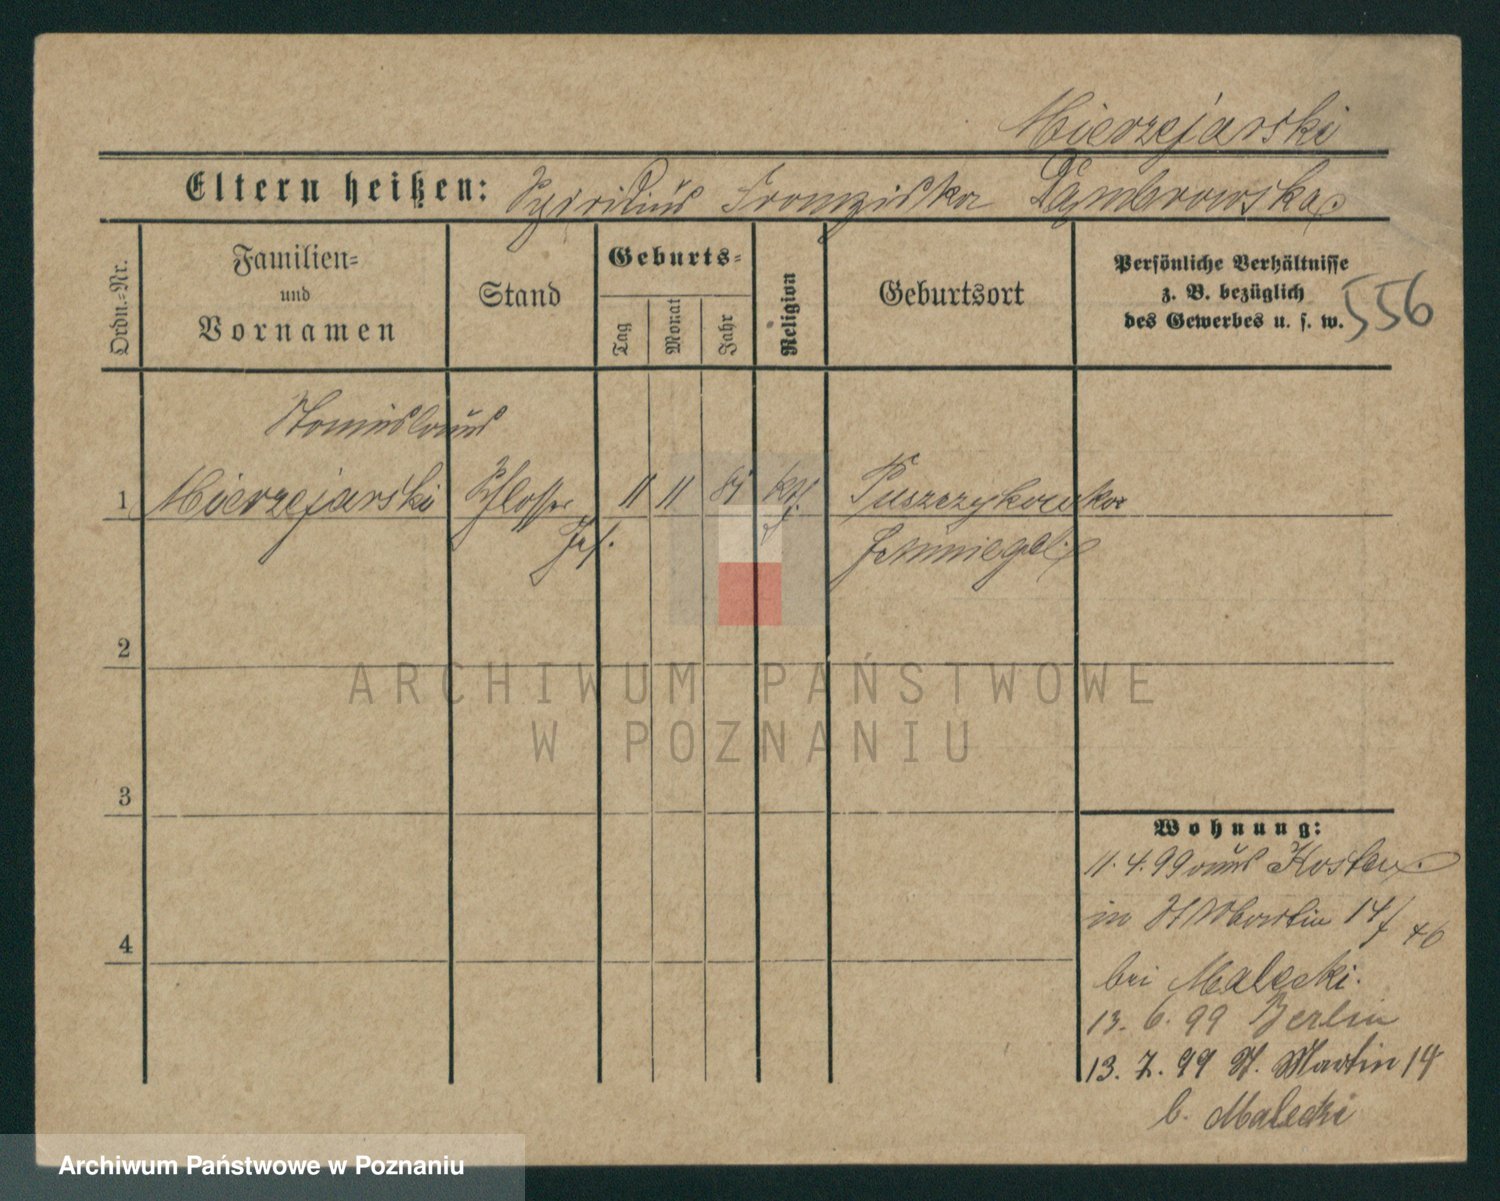 Mierzejarski
Eltern heißen: Franziska Dąmbrowska
Ordn.=Nr.
Familien=
und
Vornamen
Stand
Geburts=
Tag
Monat
Jahr
Religion
Geburtsort
Persönliche Verhältnisse
z. B. bezüglich
des Gewerbes u. s. w.
556
Stanislaus
1 Mierzejarski Schlosser 11 11 81 kth Puszczykowko
Ges.
2
3
4
Wohnung:
11. 4. 99 aus Kosten
in St Martin 14/
bei Malecki.
13. 6. 99 Berlin
13. 7. 99 St. Martin 14
b. Malecki
ARCHIWUM PAŃSTWOWE
W POZNANIU
Archiwum Państwowe w Poznaniu